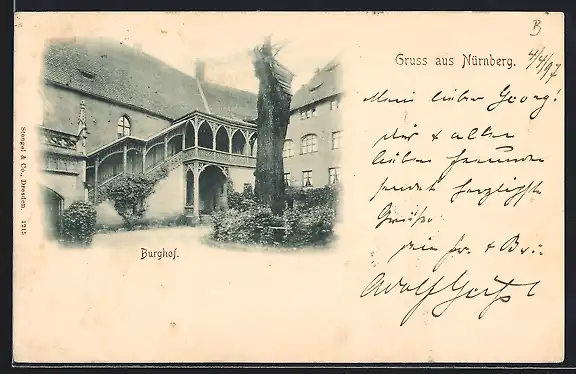 B
4/4/97
Gruss aus Nürnberg.
Mein lieber Georg!
dir & allen
lieben Freunden
sendet herzlichste
Grüße
dein Fr. & Br.
Adolf
Burghof.
Stengel & Co., Dresden 1215